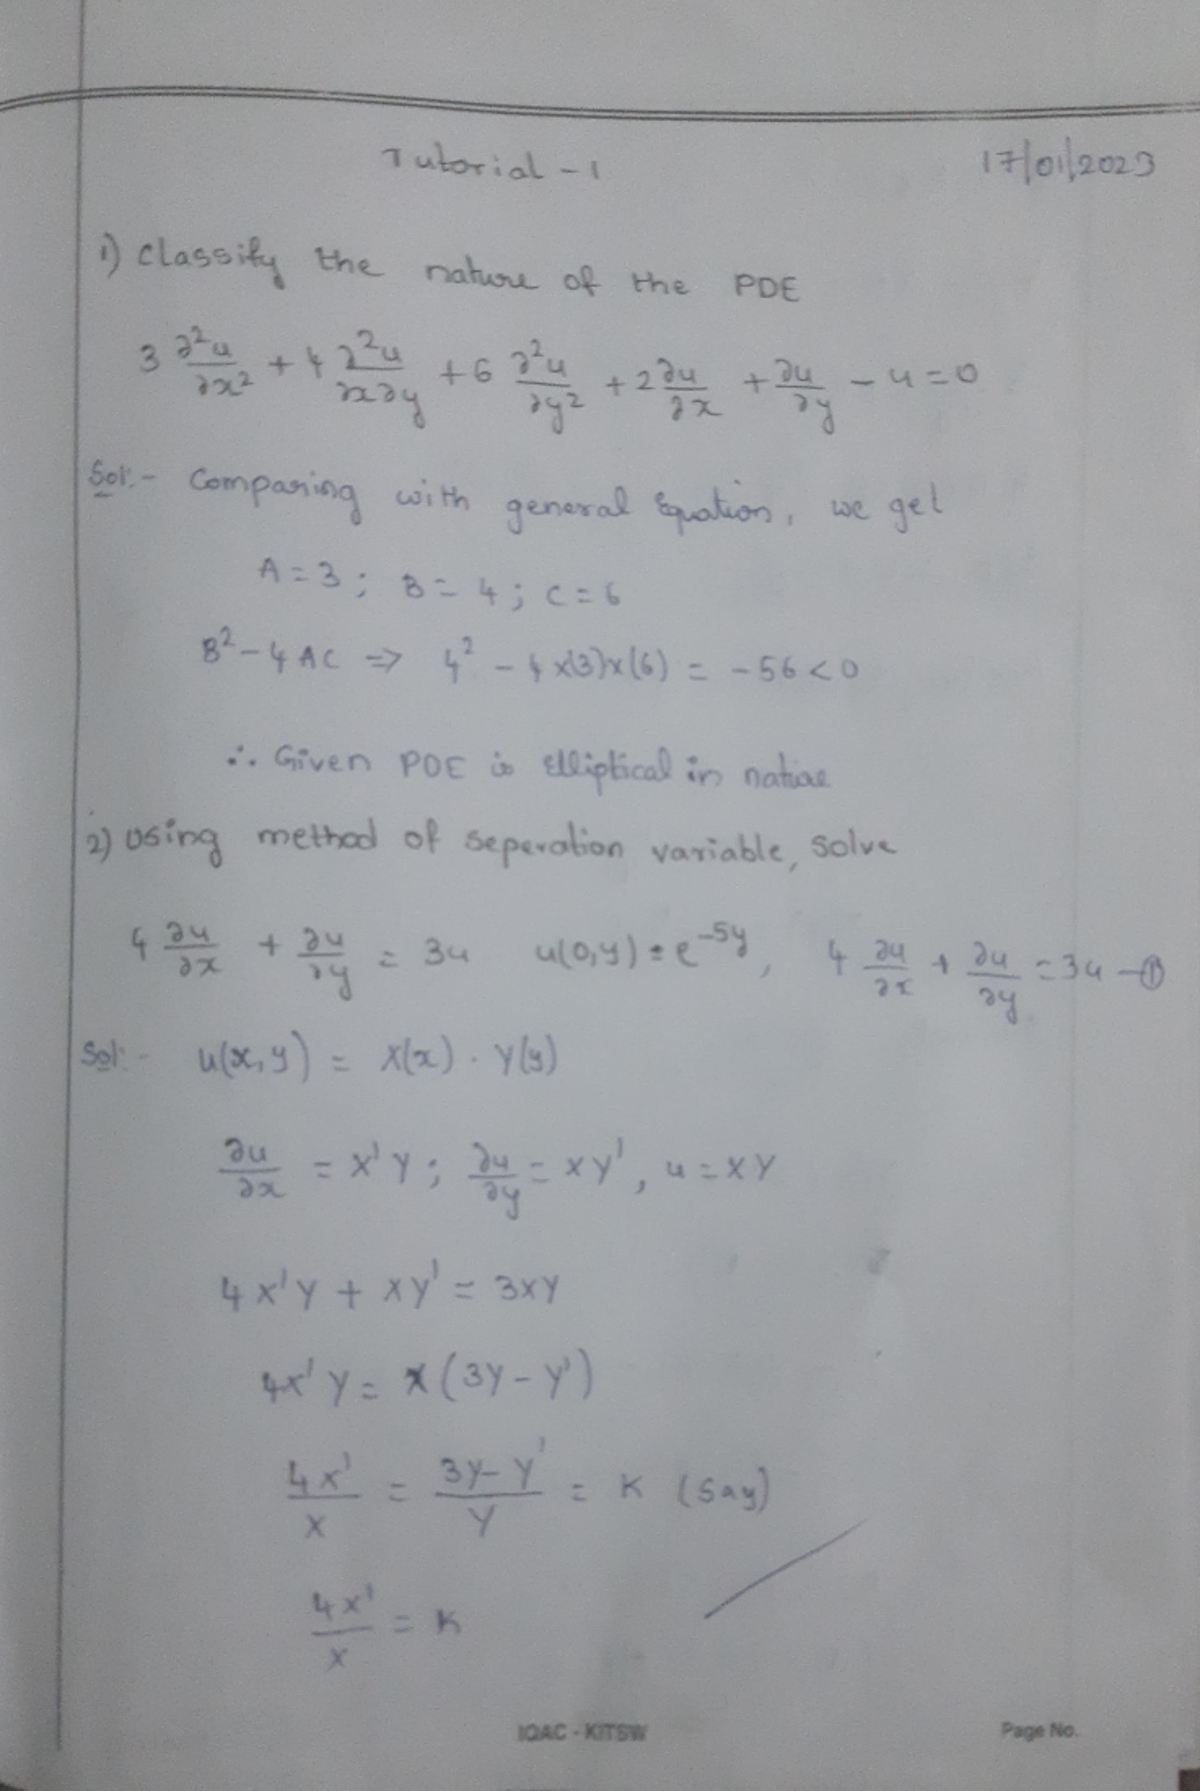 Tutorial - 1 17/01/2023
1) Classify the nature of the PDE
3 ∂²u/∂x² + 4 ∂²u/∂x∂y + 6 ∂²u/∂y² + 2 ∂u/∂x + ∂u/∂y - u = 0
Sol:- Comparing with general Equation, we get
A = 3 ; B = 4 ; C = 6
B² - 4AC => 4² - 4x(3)x(6) = -56 < 0
∴ Given PDE is Elliptical in nature
2) Using method of seperation variable, solve
4 ∂u/∂x + ∂u/∂y = 3u u(0,y) = e^-5y, 4 ∂u/∂x + ∂u/∂y = 3u -①
Sol:- u(x,y) = X(x) . Y(y)
∂u/∂x = X'Y ; ∂u/∂y = XY', u = XY
4X'Y + XY' = 3XY
4X'Y = X(3Y - Y')
4X'/X = 3Y-Y'/Y = K (Say)
4X'/X = K
IQAC - KITSW Page No.